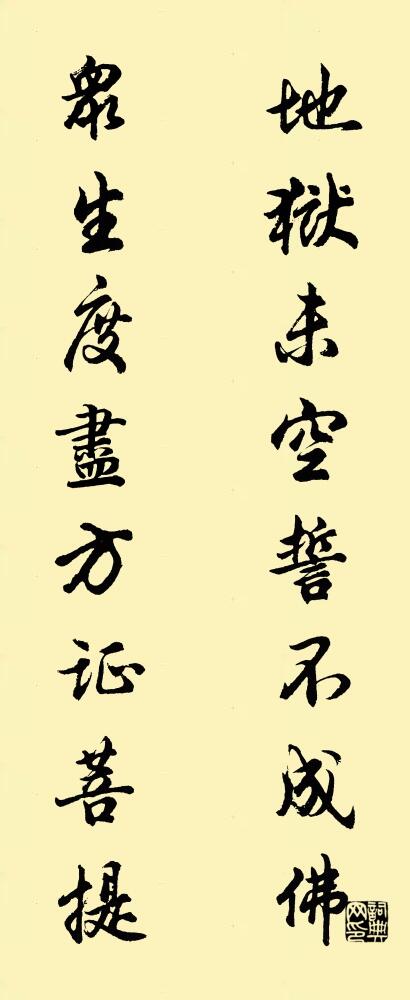 地獄未空誓不成佛
衆生度盡方证菩提
詞典網印